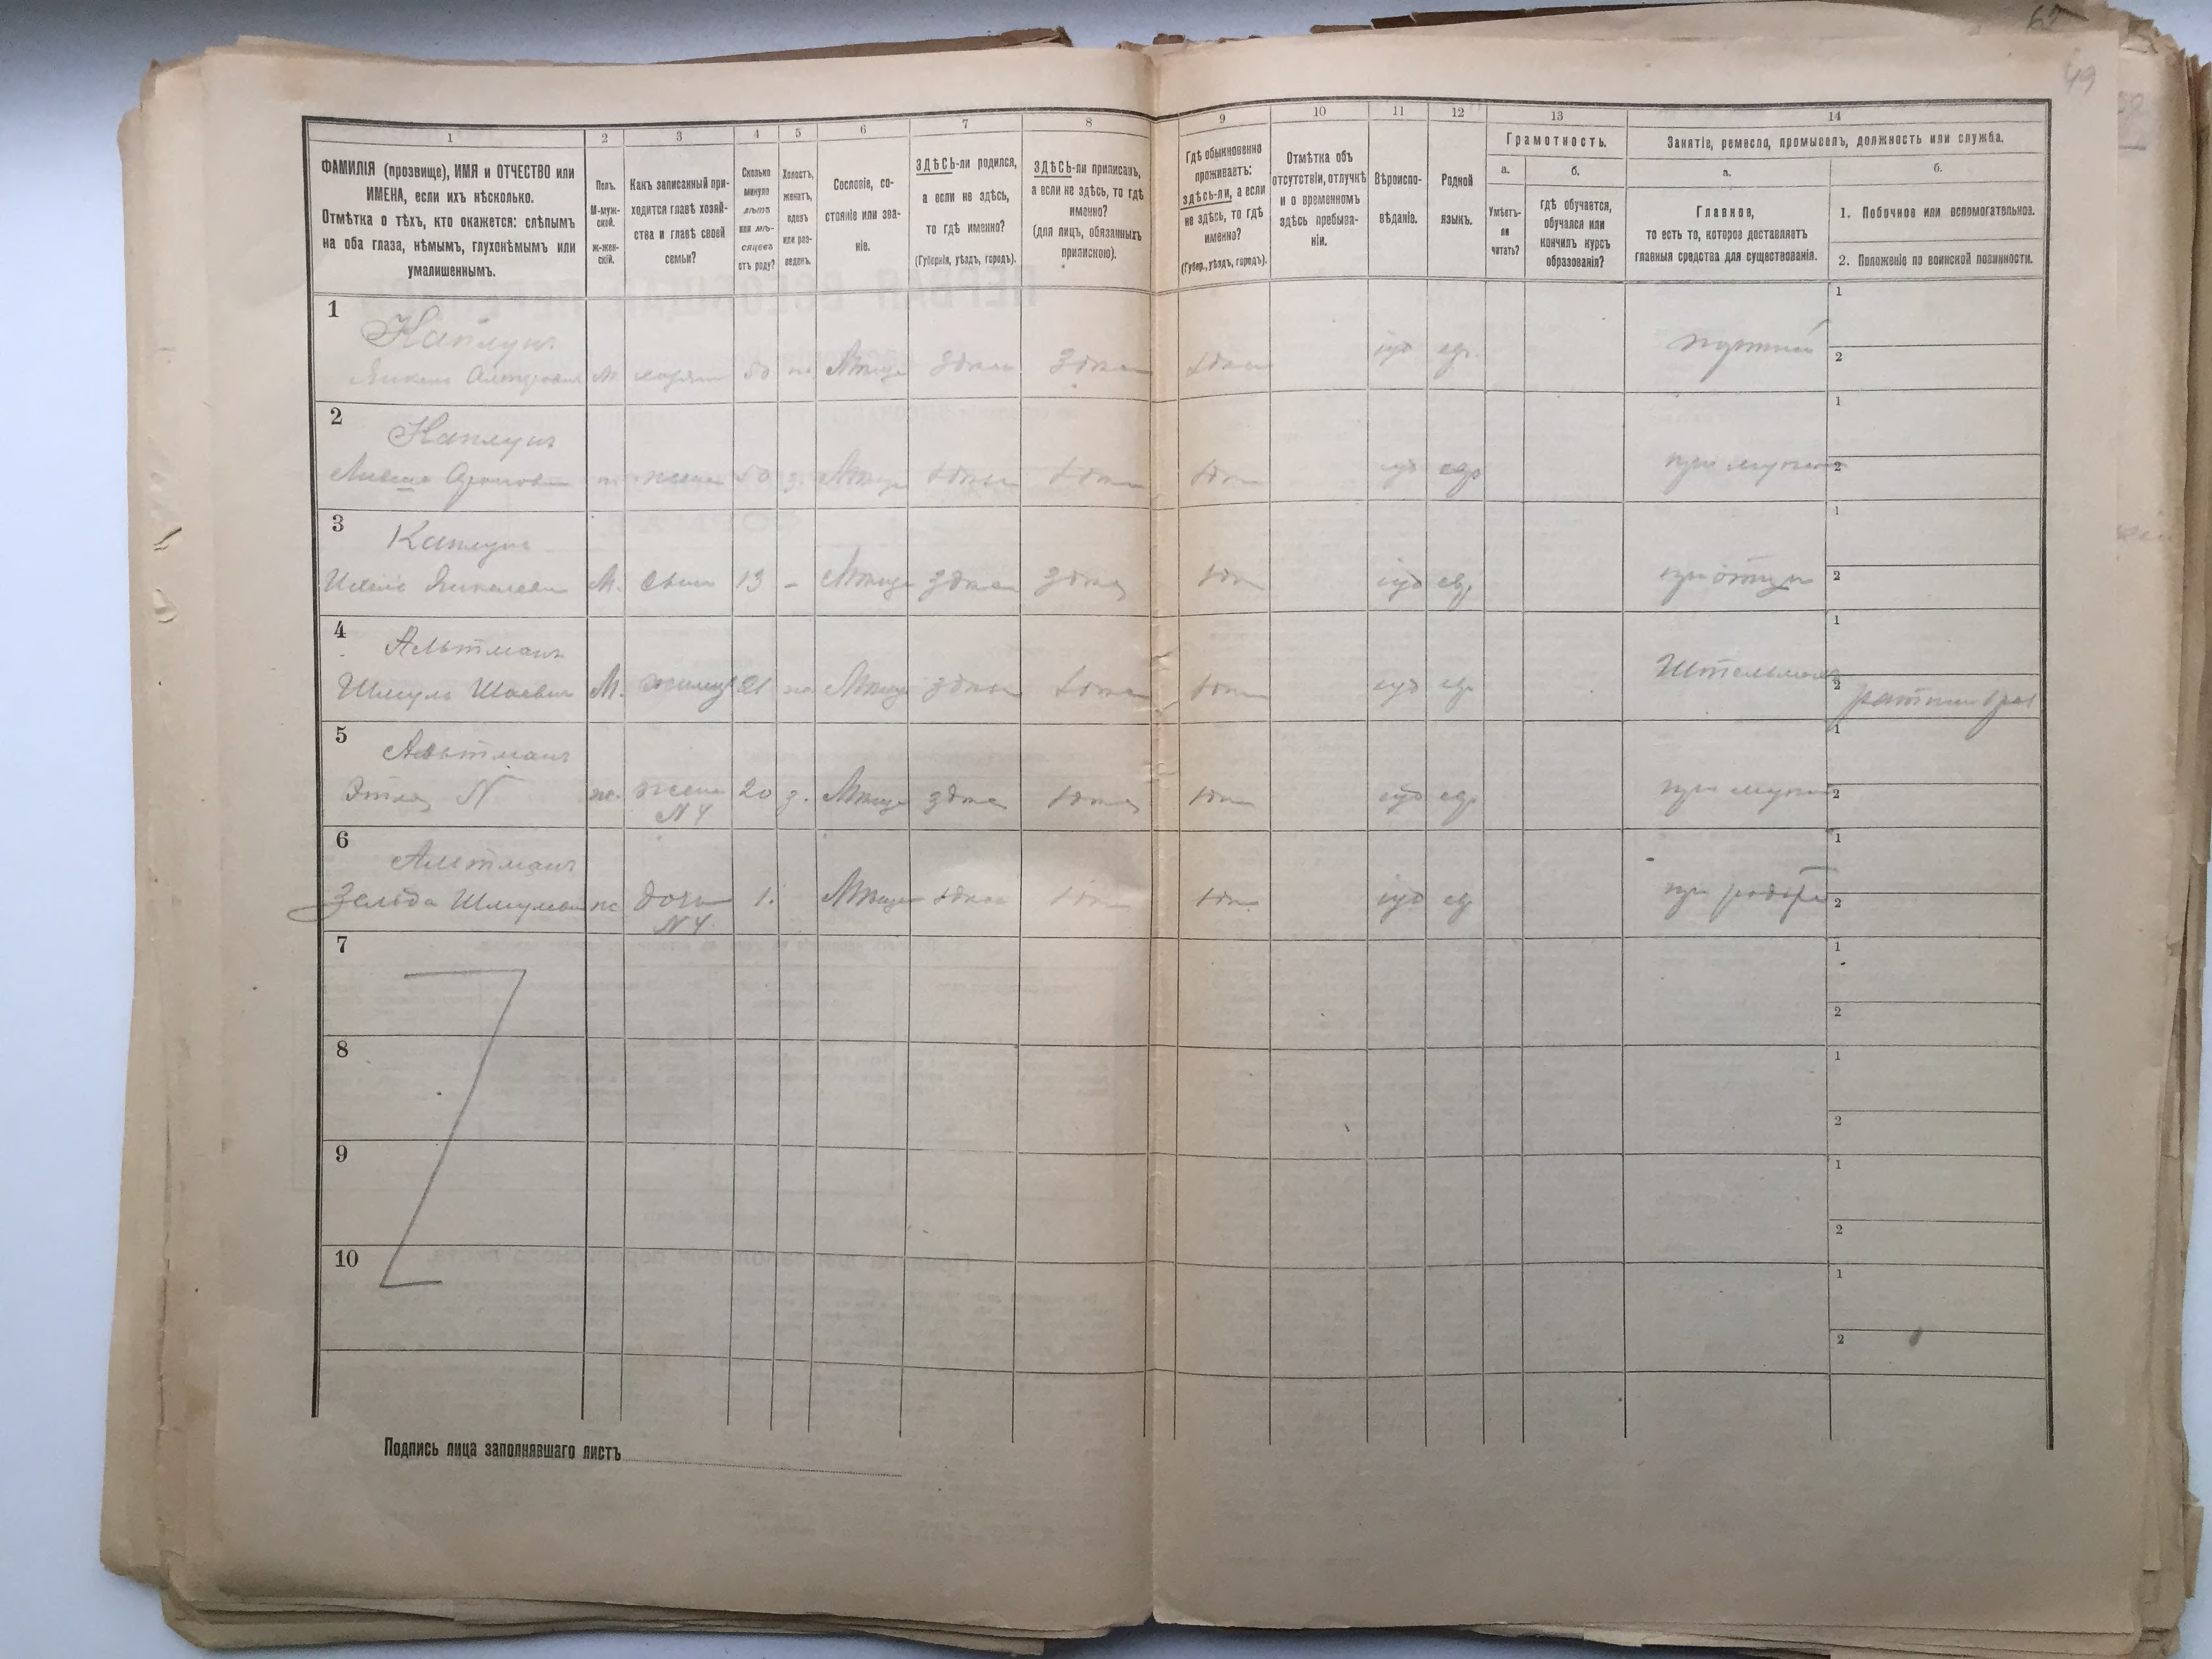 49
1
2
3
4
5
6
7
8
9
10
11
12
13
14
ФАМИЛІЯ (прозвище), ИМЯ и ОТЧЕСТВО или
ИМЕНА, если ихъ нѣсколько.
Отмѣтка о тѣхъ, кто окажется: слѣпымъ
на оба глаза, нѣмымъ, глухонѣмымъ или
умалишеннымъ.
Полъ.
М-муж-
ской.
ж-жен-
скій.
Какъ записанный при-
ходится главѣ хозяй-
ства и главѣ своей
семьи?
Сколько
минуло
лѣтъ
или мѣ-
сяцевъ
отъ роду?
Холостъ,
женатъ,
вдовъ
или раз-
веденъ.
Сословіе, со-
стояніе или зва-
ніе.
ЗДѢСЬ-ли родился,
а если не здѣсь,
то гдѣ именно?
(Губернія, уѣздъ, городъ).
ЗДѢСЬ-ли приписанъ,
а если не здѣсь, то гдѣ
именно?
(для лицъ, обязанныхъ
припискою).
Гдѣ обыкновенно
проживаетъ:
здѣсь-ли, а если
не здѣсь, то гдѣ
именно?
(Губер., уѣздъ, городъ).
Отмѣтка объ
отсутствіи, отлучкѣ
и о временномъ
здѣсь пребыва-
ніи.
Вѣроиспо-
вѣданіе.
Родной
языкъ.
Грамотность.
а.
Умѣетъ-
ли
читать?
б.
гдѣ обучается,
обучался или
кончилъ курсъ
образованія?
Занятіе, ремесло, промыселъ, должность или служба.
а.
Главное,
то есть то, которое доставляетъ
главныя средства для существованія.
б.
1. Побочное или вспомогательное.
2. Положеніе по воинской повинности.
1
Каплунъ
М
50
Мѣщ
здѣсь
здѣсь
здѣсь
іуд
евр.
портной
1
2
2
Каплунъ
Ароновна
жена
50
з.
Мѣщ
здѣсь
здѣсь
здѣсь
іуд
евр
при мужѣ
1
2
3
Каплунъ
М.
сынъ
13
–
Мѣщ
здѣсь
здѣсь
здѣсь
іуд
евр
при отцѣ
1
2
4
Альтманъ
Шмуль Шаевич
М.
жилец
21
Мѣщ
здѣсь
здѣсь
здѣсь
іуд
евр
1
2
5
Альтманъ
ж.
жена
N 4
20
з.
Мѣщ
здѣсь
здѣсь
здѣсь
іуд
евр
при мужѣ
1
2
6
Альтманъ
Зельда Шмулев
ж
дочь
N 4.
1.
Мѣщ
здѣсь
здѣсь
здѣсь
іуд
ев
1
2
7
1
2
8
1
2
9
1
2
10
1
2
Подпись лица заполнявшаго листъ